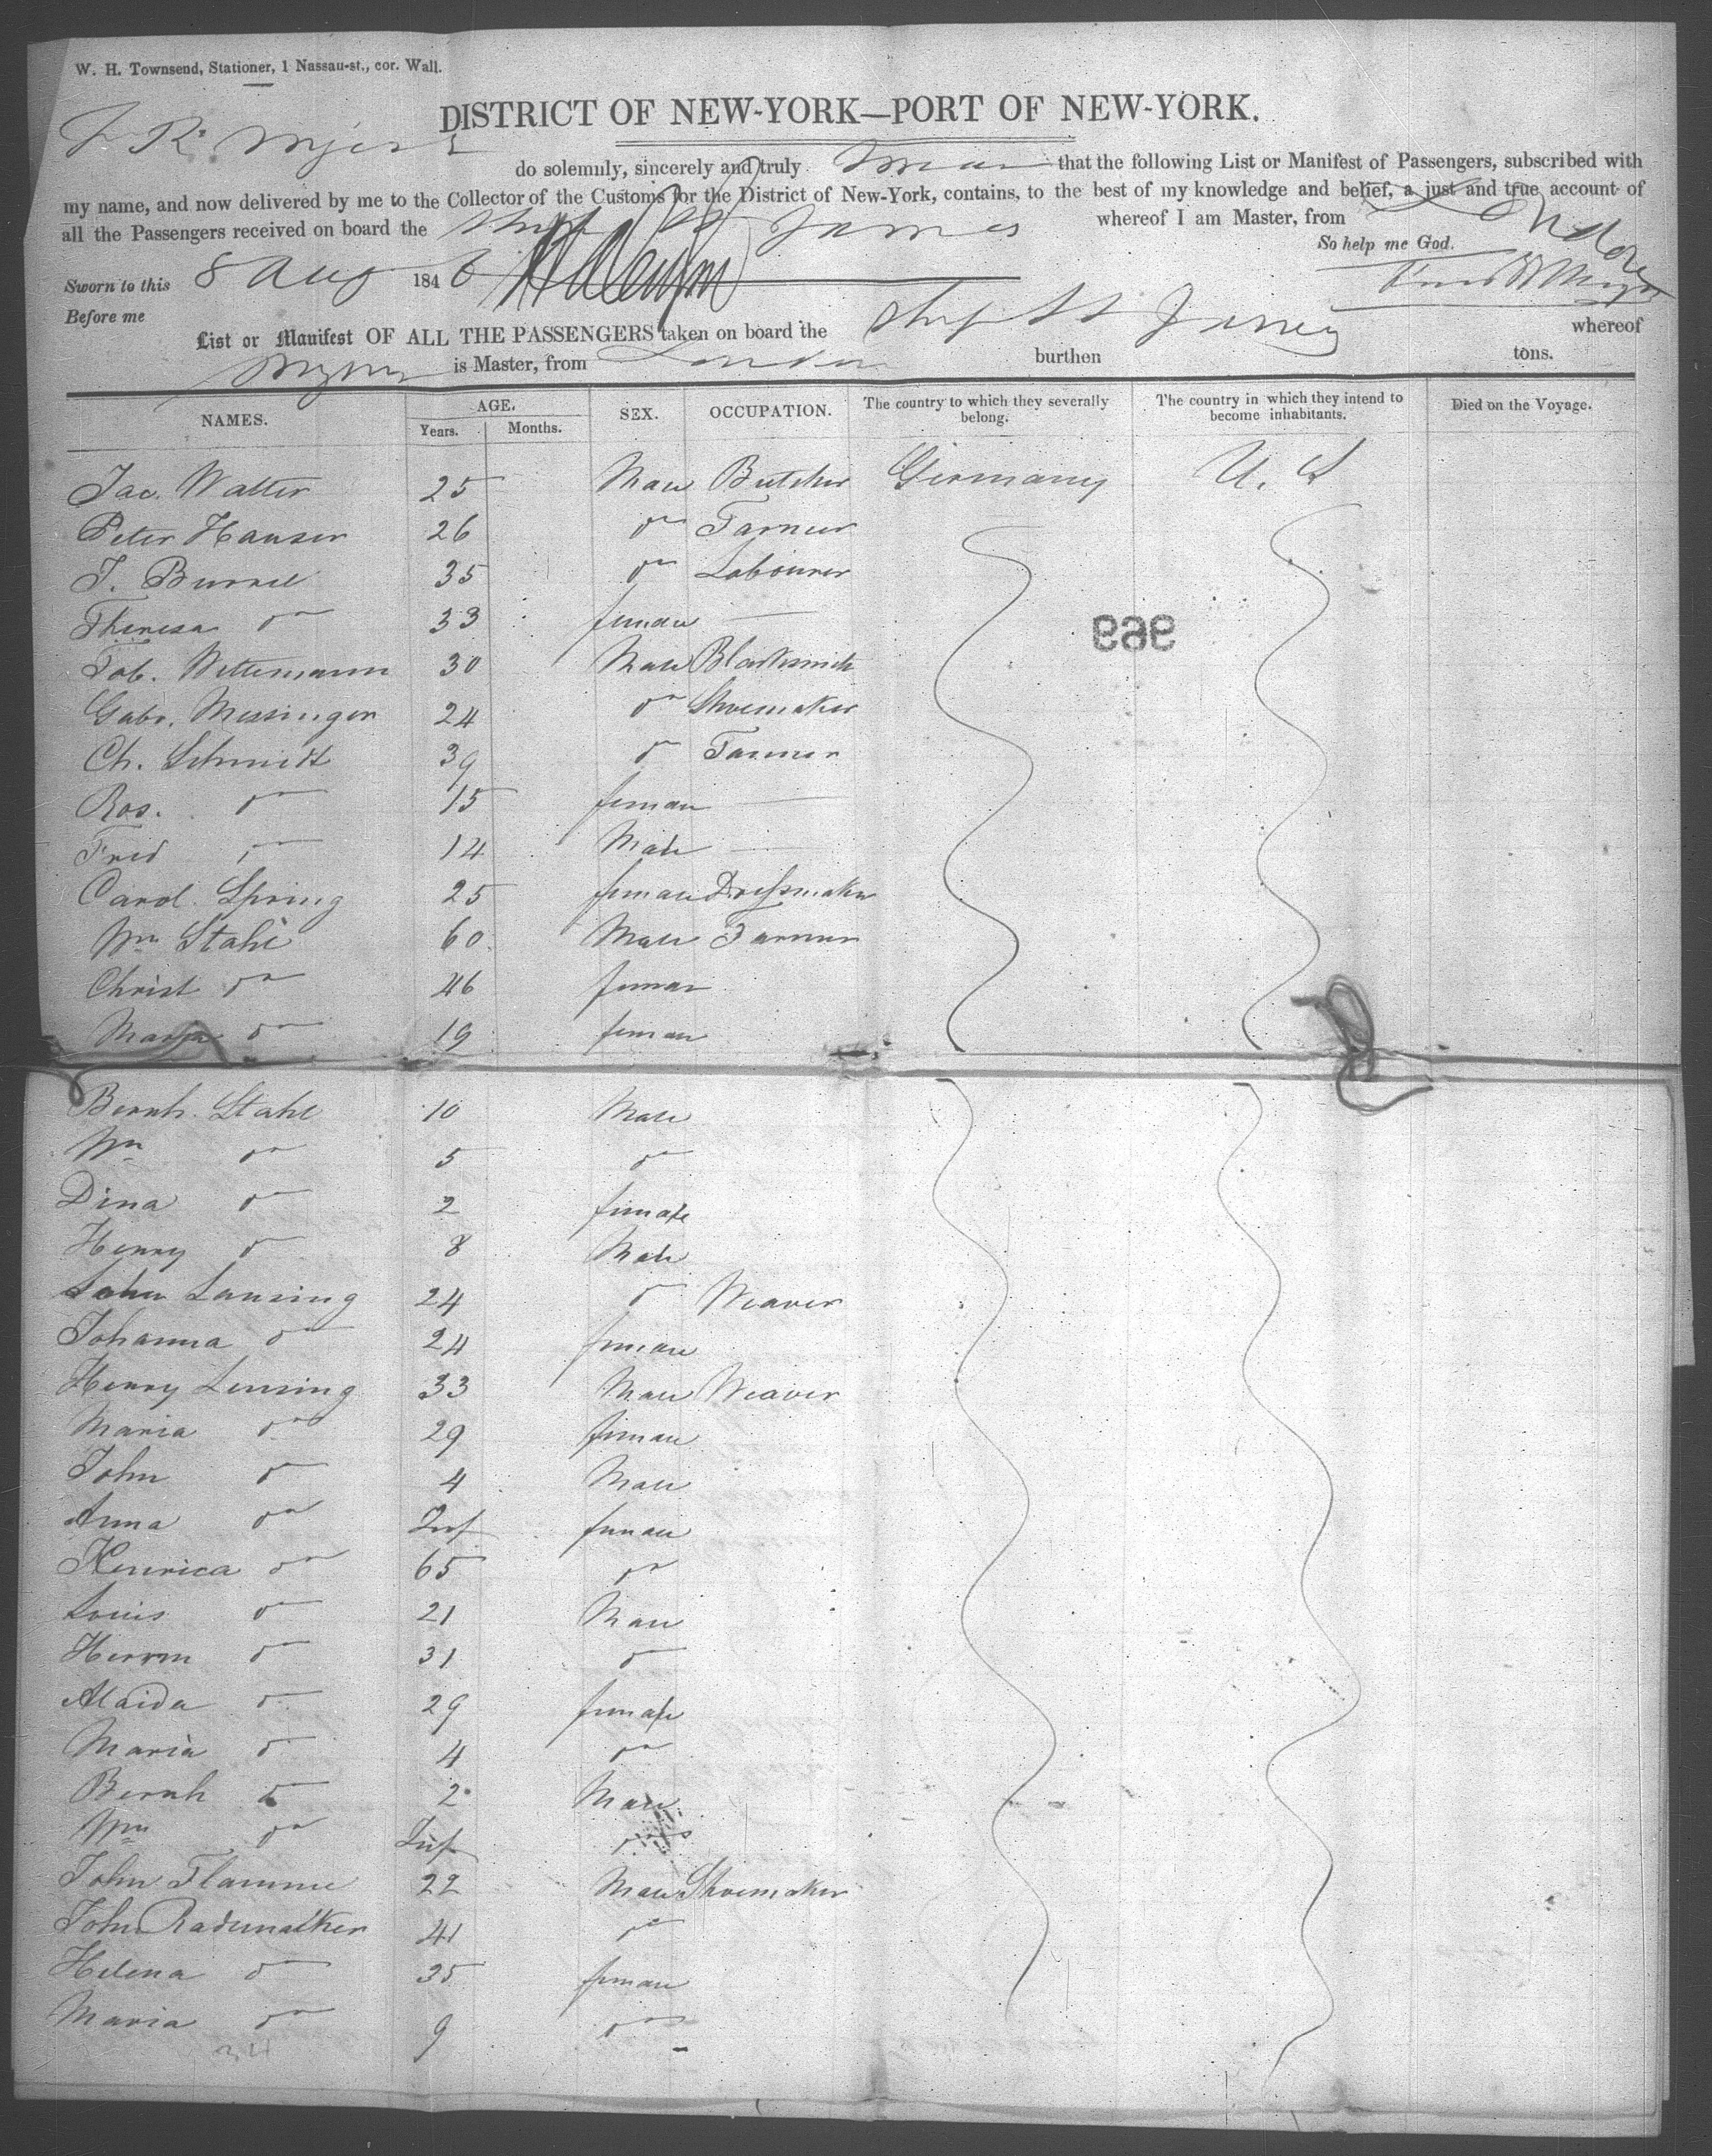 W. H. Townsend, Stationer, 1 Nassau-st., cor. Wall.
DISTRICT OF NEW-YORK—PORT OF NEW-YORK.
do solemnly, sincerely and truly swear that the following List or Manifest of Passengers, subscribed with
my name, and now delivered by me to the Collector of the Customs for the District of New-York, contains, to the best of my knowledge and belief, a just and true account of
all the Passengers received on board the Ship St James whereof I am Master, from London
So help me God.
Sworn to this 8 Aug 1846
Before me
List or Manifest OF ALL THE PASSENGERS taken on board the Ship St James whereof
Myers is Master, from London burthen tons.
NAMES. AGE. Years. Months. SEX. OCCUPATION. The country to which they severally belong. The country in which they intend to become inhabitants. Died on the Voyage.
Jac. Walter 25 Male Butcher Germany U. S
Peter Hauser 26 do Farmer
J. Burkel 35 do Labourer
Theresa do 33 female —
Tob. Wittemann 30 Male Blacksmith
Gabr. Messinger 24 do Shoemaker
Ch. Schmidt 39 do Farmer
Ros. do 15 female —
Fred do 14 Male —
Carol. Spring 25 female Dressmaker
Wm Stahl 60 Male Farmer
Christ do 46 female
Maria do 19 female
Bernh. Stahl 10 Male
Wm do 5 do
Dina do 2 female
Henry do 8 Male
John Lansing 24 do Weaver
Johanna do 24 female
Henry Lensing 33 Male Weaver
Maria do 29 female
John do 4 Male
Anna do Inf female
Henrica do 65 do
Louis do 21 Male
Herrm do 31 do
Alaida do 29 female
Maria do 4 do
Bernh do 2 Male
Wm do Inf do
John Flamme 22 Male Shoemaker
John Rademalker 41 do
Helena do 35 female
Maria do 9 do
34